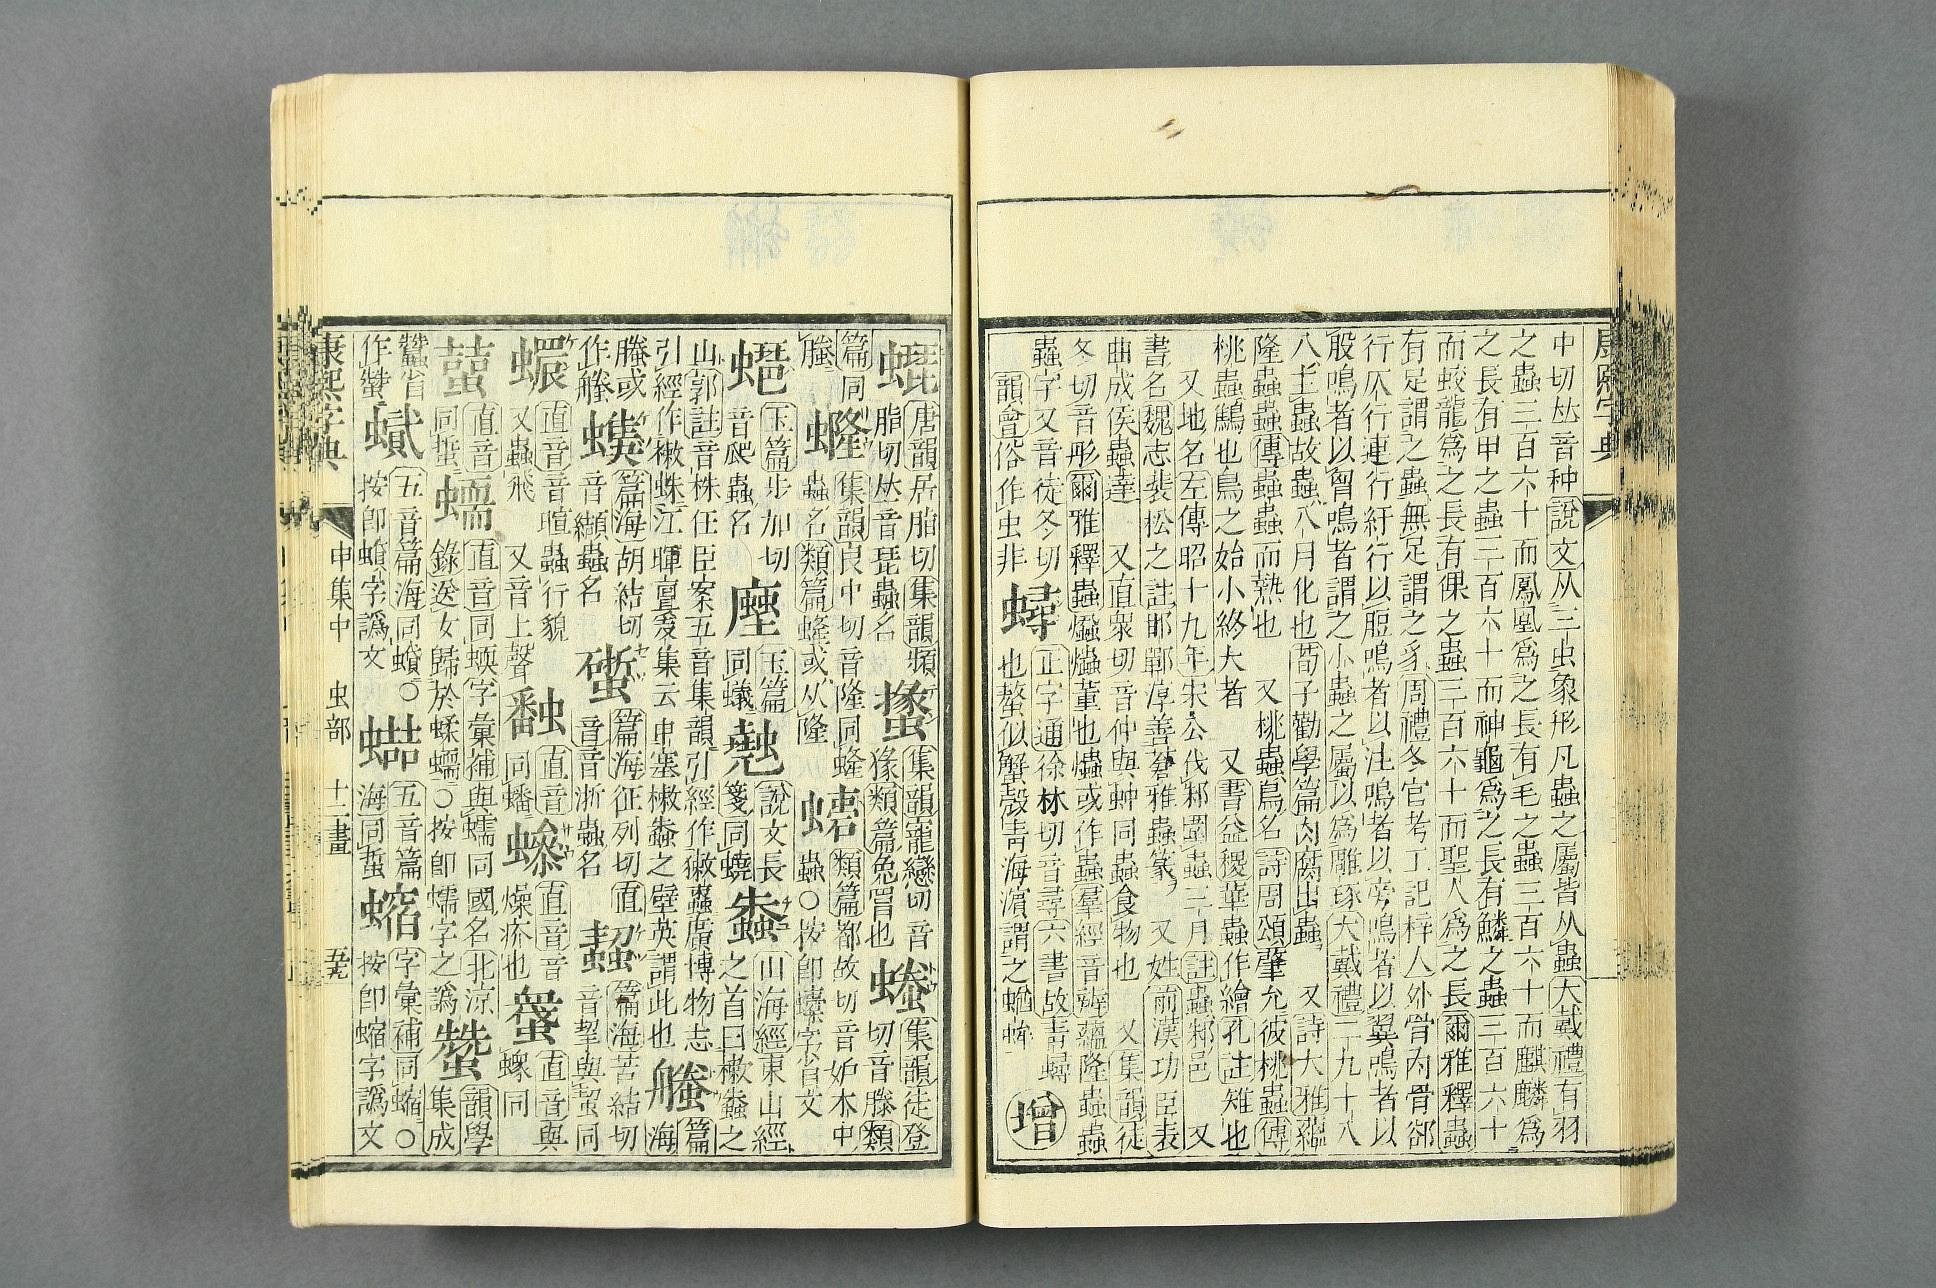 康熙字典
中切𠀤音种說文从三虫象形凡蟲之屬皆从蟲大戴禮有羽
之蟲三百六十而鳳凰爲之長有毛之蟲三百六十而麒麟爲
之長有甲之蟲三百六十而神龜爲之長有鱗之蟲三百六十
而蛟龍爲之長有倮之蟲三百六十而聖人爲之長爾雅釋蟲
有足謂之蟲無足謂之豸周禮冬官考工記梓人外骨內骨郤
行仄行連行紆行以脰鳴者以注鳴者以旁鳴者以翼鳴者以
股鳴者以胷鳴者謂之小蟲之屬以爲雕琢大戴禮二九十八
八主蟲故蟲八月化也荀子勸學篇肉腐出蟲 又詩大雅蘊
隆蟲蟲傳蟲蟲而熱也 又桃蟲鳥名詩周頌肇允彼桃蟲傳
桃蟲鷦也鳥之始小終大者 又書益稷華蟲作繪孔註雉也
又地名左傳昭十九年宋公伐邾圍蟲三月註蟲邾邑 又
書名魏志裴松之註邯鄲淳善蒼雅蟲篆 又姓前漢功臣表
曲成侯蟲達 又直衆切音仲與蚛同蟲食物也 又集韻徒
冬切音彤爾雅釋蟲爞爞薰也爞或作蟲羣經音辨蘊隆蟲蟲
蟲字又音徒冬切
韻會俗作虫非
蟳
正字通徐林切音尋六書故靑蟳
也螯似蟹殼靑海濱謂之蝤蛑
增
唐韻居脂切集韻頻
脂切𠀤音琵蟲名
集韻寵戀切音
猭類篇兔罥也
集韻徒登
切音滕類
篇同
螣
集韻良中切音隆同蜂
蟲名類篇蜂或从隆
類篇都故切音妒木中
蟲○按卽蠹字省文
玉篇步加切
音爬蟲名
玉篇
同蟻
說文長
箋同蟯
山海經東山經
之首曰樕䖪之
山郭註音株任臣案五音集韻引經作獙䖪廣博物志
引經作樕蛛江暉亶爰集云申塞樕䖪之壁英謂此也
篇
海
螣或
作𧑤
篇海胡結切
音纈蟲名
篇海征列切
音浙蟲名
篇海苦結切
音挈與蛪同
蠉
直音音暄蟲行貌
又蟲飛 又音上聲
直音
同蟠
直音音
燥疥也
直音與
蠔同
直音
同蜇
蠕
直音同蝡字彙補與蠕同國名北涼
錄送女歸於蝚蠕○按卽蠕字之譌
韻學
集成
蠶省
作蠺
五音篇海同蠀○
按卽蠀字譌文
五音篇
海同蜇
字彙補同蝫○
按卽蝫字譌文
康熙字典 申集中 虫部 十二畫